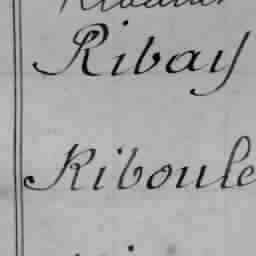 Ribay
Riboule